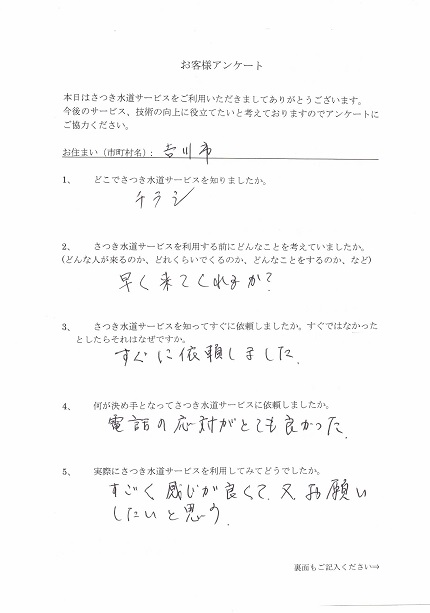 お客様アンケート
本日はさつき水道サービスをご利用いただきましてありがとうございます。
今後のサービス、技術の向上に役立てたいと考えておりますのでアンケートに
ご協力ください。
お住まい（市町村名）： 吉川市
1、 どこでさつき水道サービスを知りましたか。
チラシ
2、 さつき水道サービスを利用する前にどんなことを考えていましたか。
（どんな人が来るのか、どれくらいでくるのか、どんなことをするのか、など）
早く来てくれるか？
3、 さつき水道サービスを知ってすぐに依頼しましたか。すぐではなかった
としたらそれはなぜですか。
すぐに依頼しました.
4、 何が決め手となってさつき水道サービスに依頼しましたか。
電話の応対がとても良かった.
5、 実際にさつき水道サービスを利用してみてどうでしたか。
すごく感じが良くて、又お願い
したいと思う.
裏面もご記入ください⇒